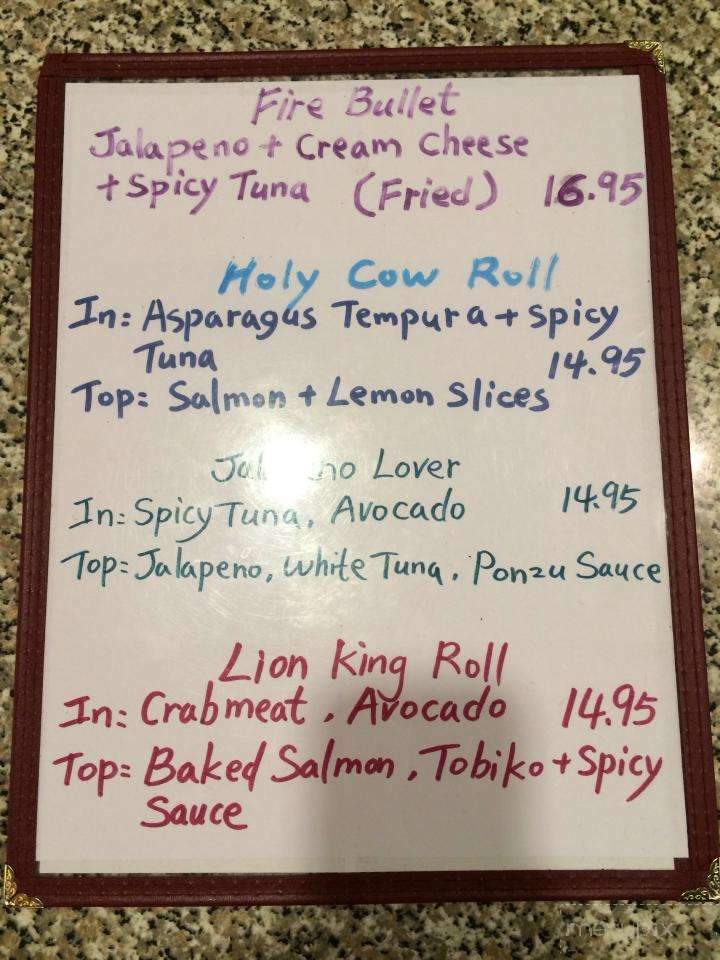 Fire Bullet
Jalapeno + Cream Cheese
+ Spicy Tuna (Fried) 16.95
Holy Cow Roll
In: Asparagus Tempura + Spicy
Tuna 14.95
Top: Salmon + Lemon Slices
Lover
In: Spicy Tuna, Avocado 14.95
Top: Jalapeno, White Tuna, Ponzu Sauce
Lion King Roll
In: Crabmeat, Avocado 14.95
Top: Baked Salmon, Tobiko + Spicy
Sauce